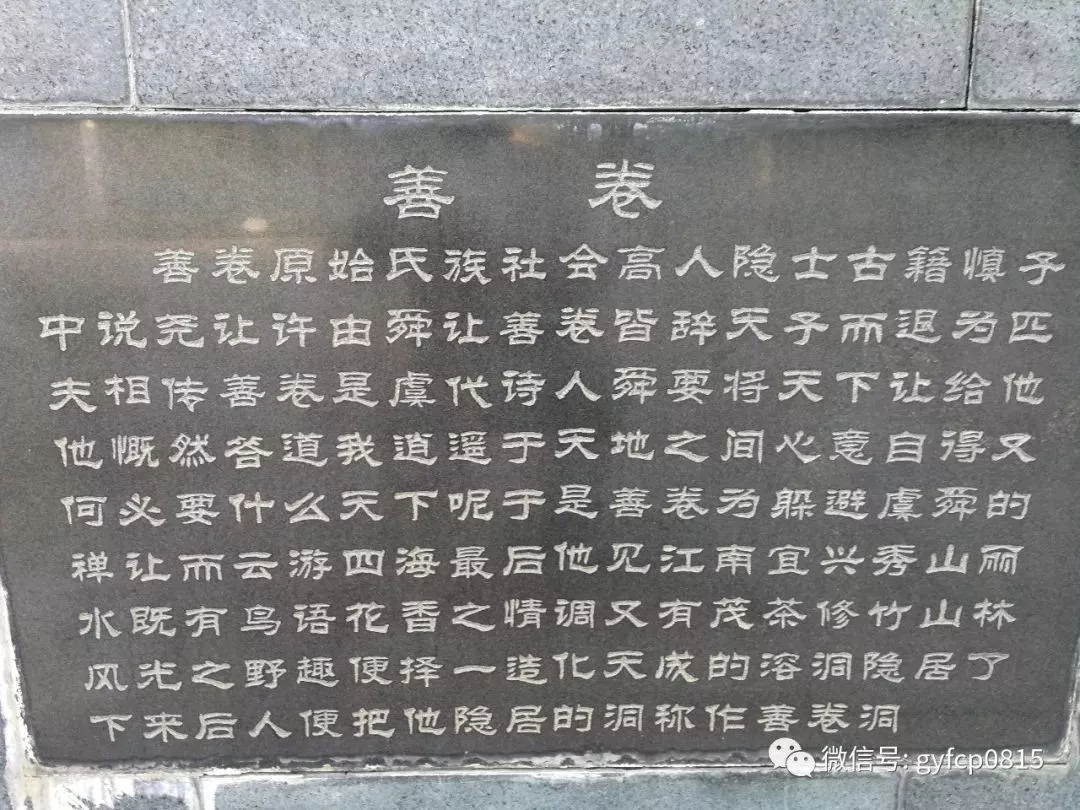 善卷
善卷原始氏族社会高人隐士古籍慎子
中说尧让许由舜让善卷皆辞天子而退为匹
夫相传善卷是虞代诗人舜要将天下让给他
他慨然答道我逍遥于天地之间心意自得又
何必要什么天下呢于是善卷为躲避虞舜的
禅让而云游四海最后他见江南宜兴秀山丽
水既有鸟语花香之情调又有茂茶修竹山林
风光之野趣便择一造化天成的溶洞隐居了
下来后人便把他隐居的洞称作善卷洞
微信号: gyfcp0815